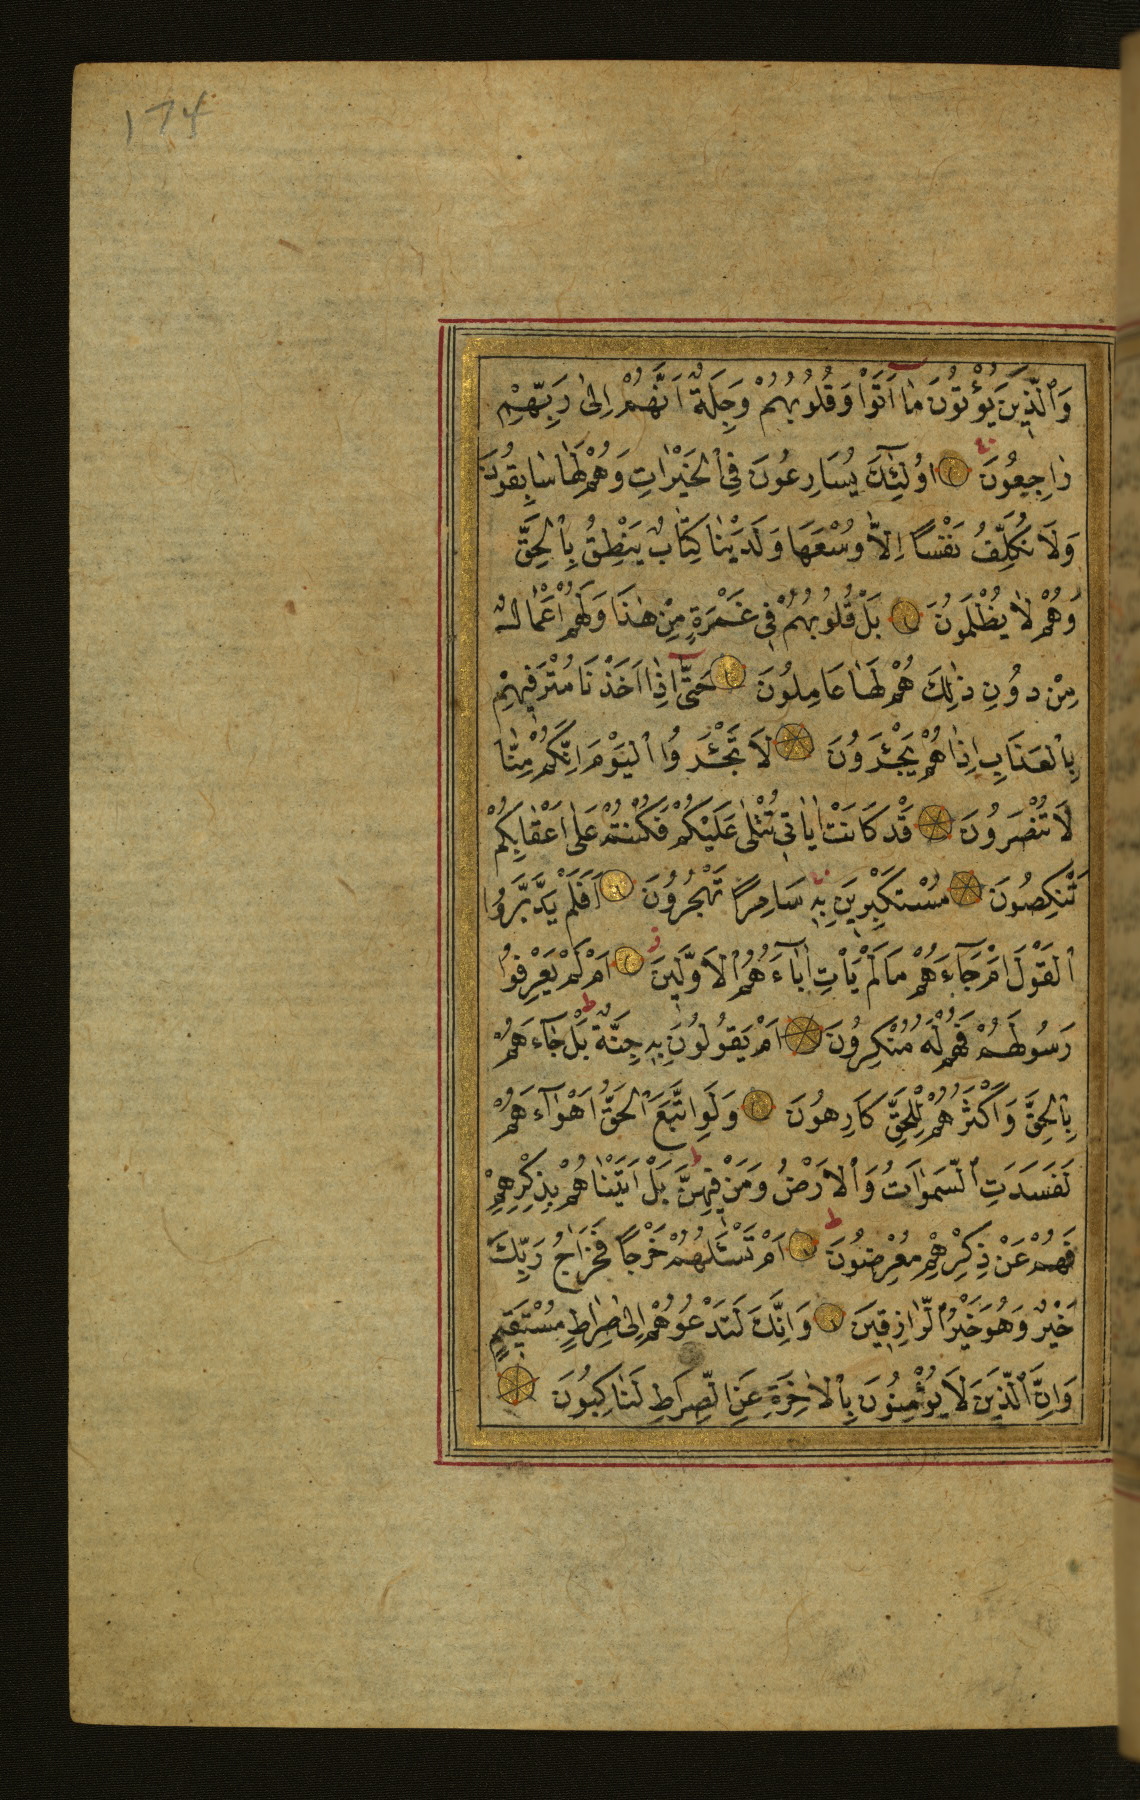 174
وَالَّذِينَ يُؤْتُونَ مَا اٰتَوْا وَقُلُوبُهُمْ وَجِلَةٌ اَنَّهُمْ اِلٰى رَبِّهِمْ
رَاجِعُونَ اُولٰئِكَ يُسَارِعُونَ فِي الْخَيْرَاتِ وَهُمْ لَهَا سَابِقُونَ
وَلَا نُكَلِّفُ نَفْسًا اِلَّا وُسْعَهَا وَلَدَيْنَا كِتَابٌ يَنْطِقُ بِالْحَقِّ
وَهُمْ لَا يُظْلَمُونَ بَلْ قُلُوبُهُمْ فِي غَمْرَةٍ مِنْ هٰذَا وَلَهُمْ اَعْمَالٌ
مِنْ دُونِ ذٰلِكَ هُمْ لَهَا عَامِلُونَ حَتّٰى اِذَا اَخَذْنَا مُتْرَفِيهِمْ
بِالْعَذَابِ اِذَا هُمْ يَجْـَٔرُونَ لَا تَجْـَٔرُوا الْيَوْمَ اِنَّكُمْ مِنَّا
لَا تُنْصَرُونَ قَدْ كَانَتْ اٰيَاتِي تُتْلٰى عَلَيْكُمْ فَكُنْتُمْ عَلٰى اَعْقَابِكُمْ
تَنْكِصُونَ مُسْتَكْبِرِينَ بِهِ سَامِرًا تَهْجُرُونَ اَفَلَمْ يَدَّبَّرُوا
الْقَوْلَ اَمْ جَآءَهُمْ مَا لَمْ يَاْتِ اٰبَآءَهُمُ الْاَوَّلِينَ اَمْ لَمْ يَعْرِفُوا
رَسُولَهُمْ فَهُمْ لَهُ مُنْكِرُونَ اَمْ يَقُولُونَ بِهِ جِنَّةٌ بَلْ جَآءَهُمْ
بِالْحَقِّ وَاَكْثَرُهُمْ لِلْحَقِّ كَارِهُونَ وَلَوِ اتَّبَعَ الْحَقُّ اَهْوَآءَهُمْ
لَفَسَدَتِ السَّمٰوَاتُ وَالْاَرْضُ وَمَنْ فِيهِنَّ بَلْ اَتَيْنَاهُمْ بِذِكْرِهِمْ
فَهُمْ عَنْ ذِكْرِهِمْ مُعْرِضُونَ اَمْ تَسْـَٔلُهُمْ خَرْجًا فَخَرَاجُ رَبِّكَ
خَيْرٌ وَهُوَ خَيْرُ الرَّازِقِينَ وَاِنَّكَ لَتَدْعُوهُمْ اِلٰى صِرَاطٍ مُسْتَقِيمٍ
وَاِنَّ الَّذِينَ لَا يُؤْمِنُونَ بِالْاٰخِرَةِ عَنِ الصِّرَاطِ لَنَاكِبُونَ